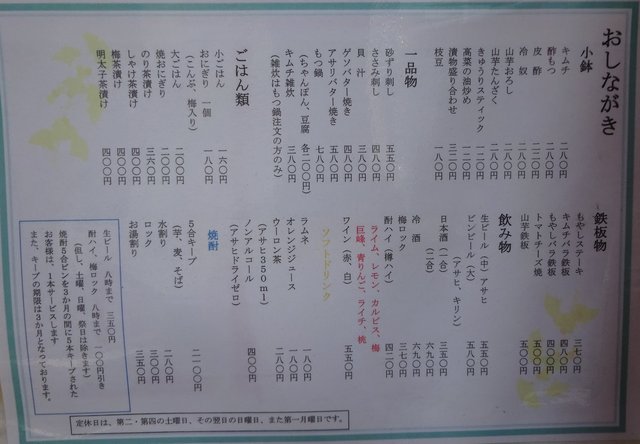 おしながき
小鉢
キムチ 二八〇円
酢もつ 二八〇円
皮酢 二二〇円
冷奴 二二〇円
山芋おろし 二八〇円
山芋たんざく 二八〇円
きゅうりスティック 二二〇円
高菜の油炒め 二二〇円
漬物盛り合わせ 三二〇円
枝豆 一八〇円
一品物
砂ずり刺し 五五〇円
ささみ刺し 四八〇円
貝汁 三八〇円
ゲソバター焼き 四八〇円
アサリバター焼き 五八〇円
もつ鍋 七八〇円
(ちゃんぽん、豆腐 各二〇〇円)
キムチ雑炊 三八〇円
(雑炊はもつ鍋注文の方のみ)
ごはん類
小ごはん 一六〇円
おにぎり 一個 一八〇円
(こんぶ、梅入り)
大ごはん 二〇〇円
焼おにぎり 二〇〇円
のり茶漬け 三六〇円
しゃけ茶漬け 四〇〇円
梅茶漬け 四〇〇円
明太子茶漬け 四〇〇円
鉄板物
もやしステーキ 三七〇円
キムチバラ鉄板 四八〇円
もやしバラ鉄板 四八〇円
トマトチーズ焼 五〇〇円
山芋鉄板 五〇〇円
飲み物
生ビール(中)アサヒ 五五〇円
ビンビール(大) 五八〇円
(アサヒ、キリン)
日本酒(一合) 三五〇円
(二合) 六九〇円
冷酒 六九〇円
梅ロック 三七〇円
酎ハイ(樽ハイ) 四二〇円
ライム、レモン、カルピス、梅
巨峰、青りんご、ライチ、桃
ワイン(赤、白) 五五〇円
ソフトドリンク
ラムネ 一八〇円
オレンジジュース 一八〇円
ウーロン茶 二八〇円
(アサヒ350ml)
ノンアルコール 四〇〇円
(アサヒドライゼロ)
焼酎
5合キープ 二一〇〇円
(芋、麦、そば)
水割り 二八〇円
ロック 三五〇円
お湯割り 三五〇円
生ビール 八時まで 三五〇円
酎ハイ、梅ロック 八時まで 一〇〇円引き
(但し、土曜、日曜、祭日は除きます)
焼酎5合ビンを3か月の間に5本キープされた
お客様は、1本サービスします
また、キープの期限は3か月となっております。
定休日は、第二・第四の土曜日、その翌日の日曜日、また第一月曜日です。